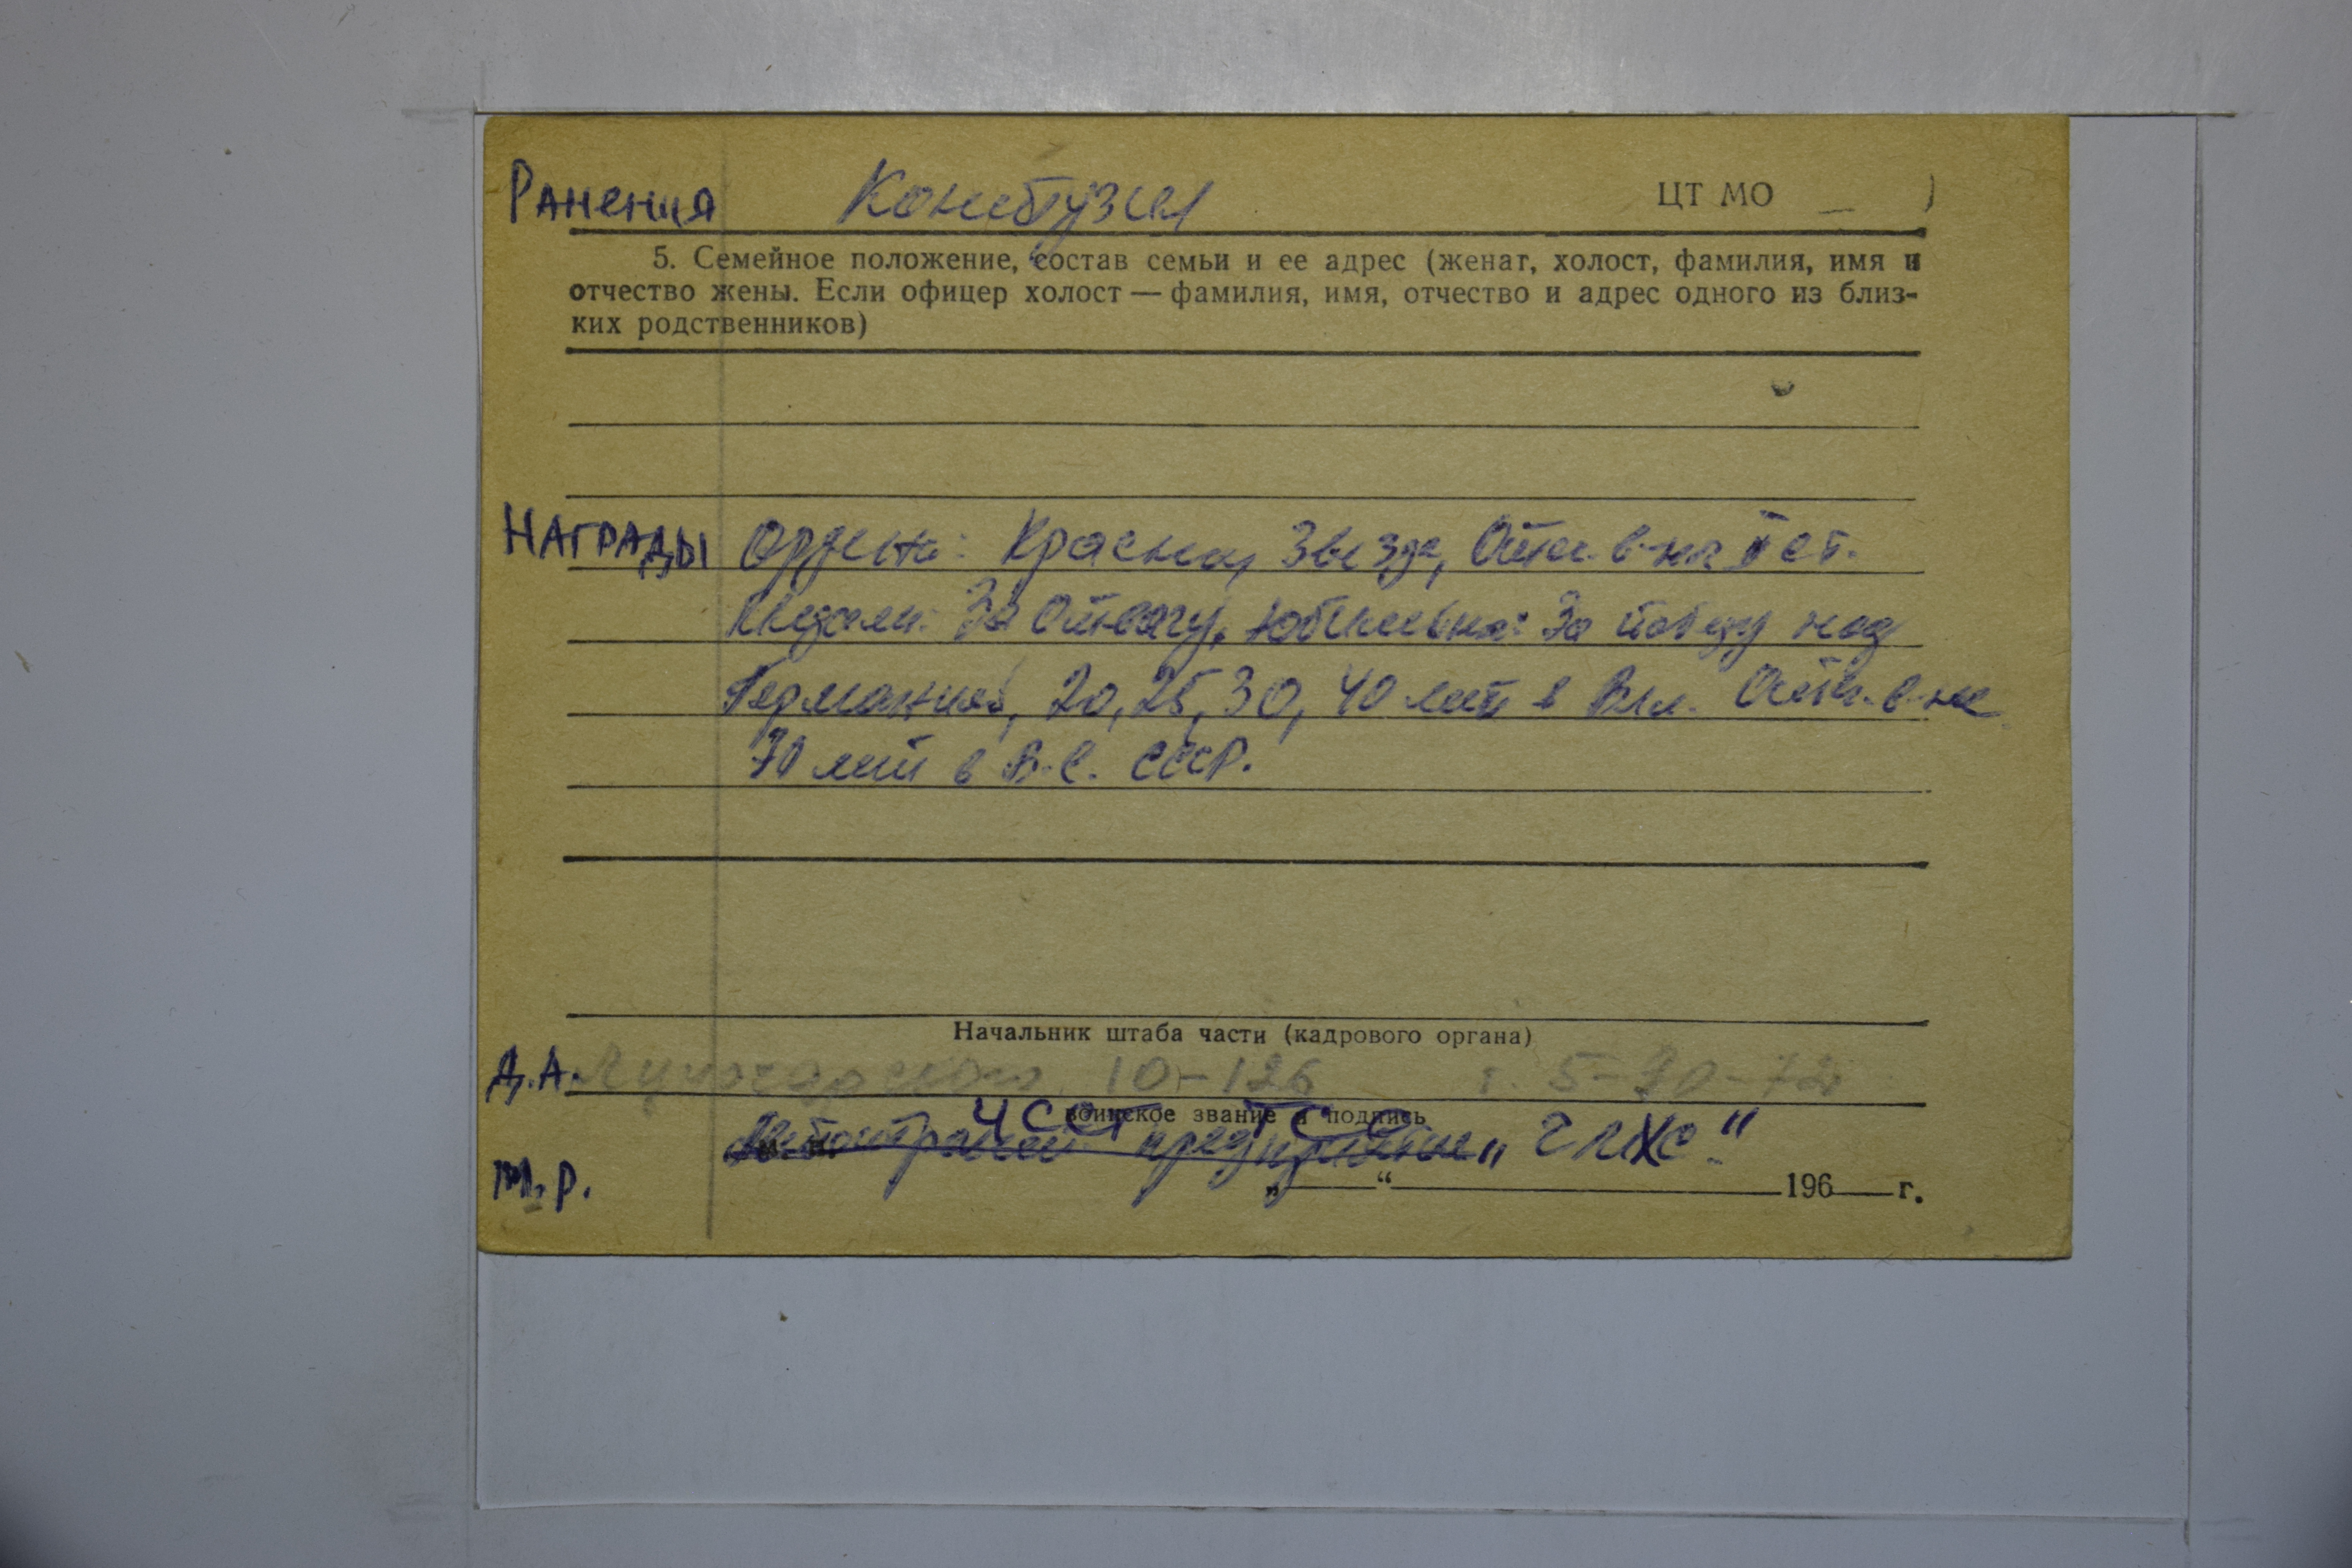 Ранения Контузия ЦТ МО
5. Семейное положение, состав семьи и ее адрес (женат, холост, фамилия, имя и
отчество жены. Если офицер холост — фамилия, имя, отчество и адрес одного из близ-
ких родственников)
Награды Ордена: Красная Звезда, Отеч. в-на II ст.
Медали: За Отвагу, Юбилейна: За победу над
Германией, 20, 25, 30, 40 лет в Вел. Отеч. в-не
70 лет в В.С. СССР.
Начальник штаба части (кадрового органа)
Д.А. Луначарского 10-126 т. 5-20-72
воинское звание и подпись
ЧССР ТСС
предприятие
М.Р.
„ “ 196 г.